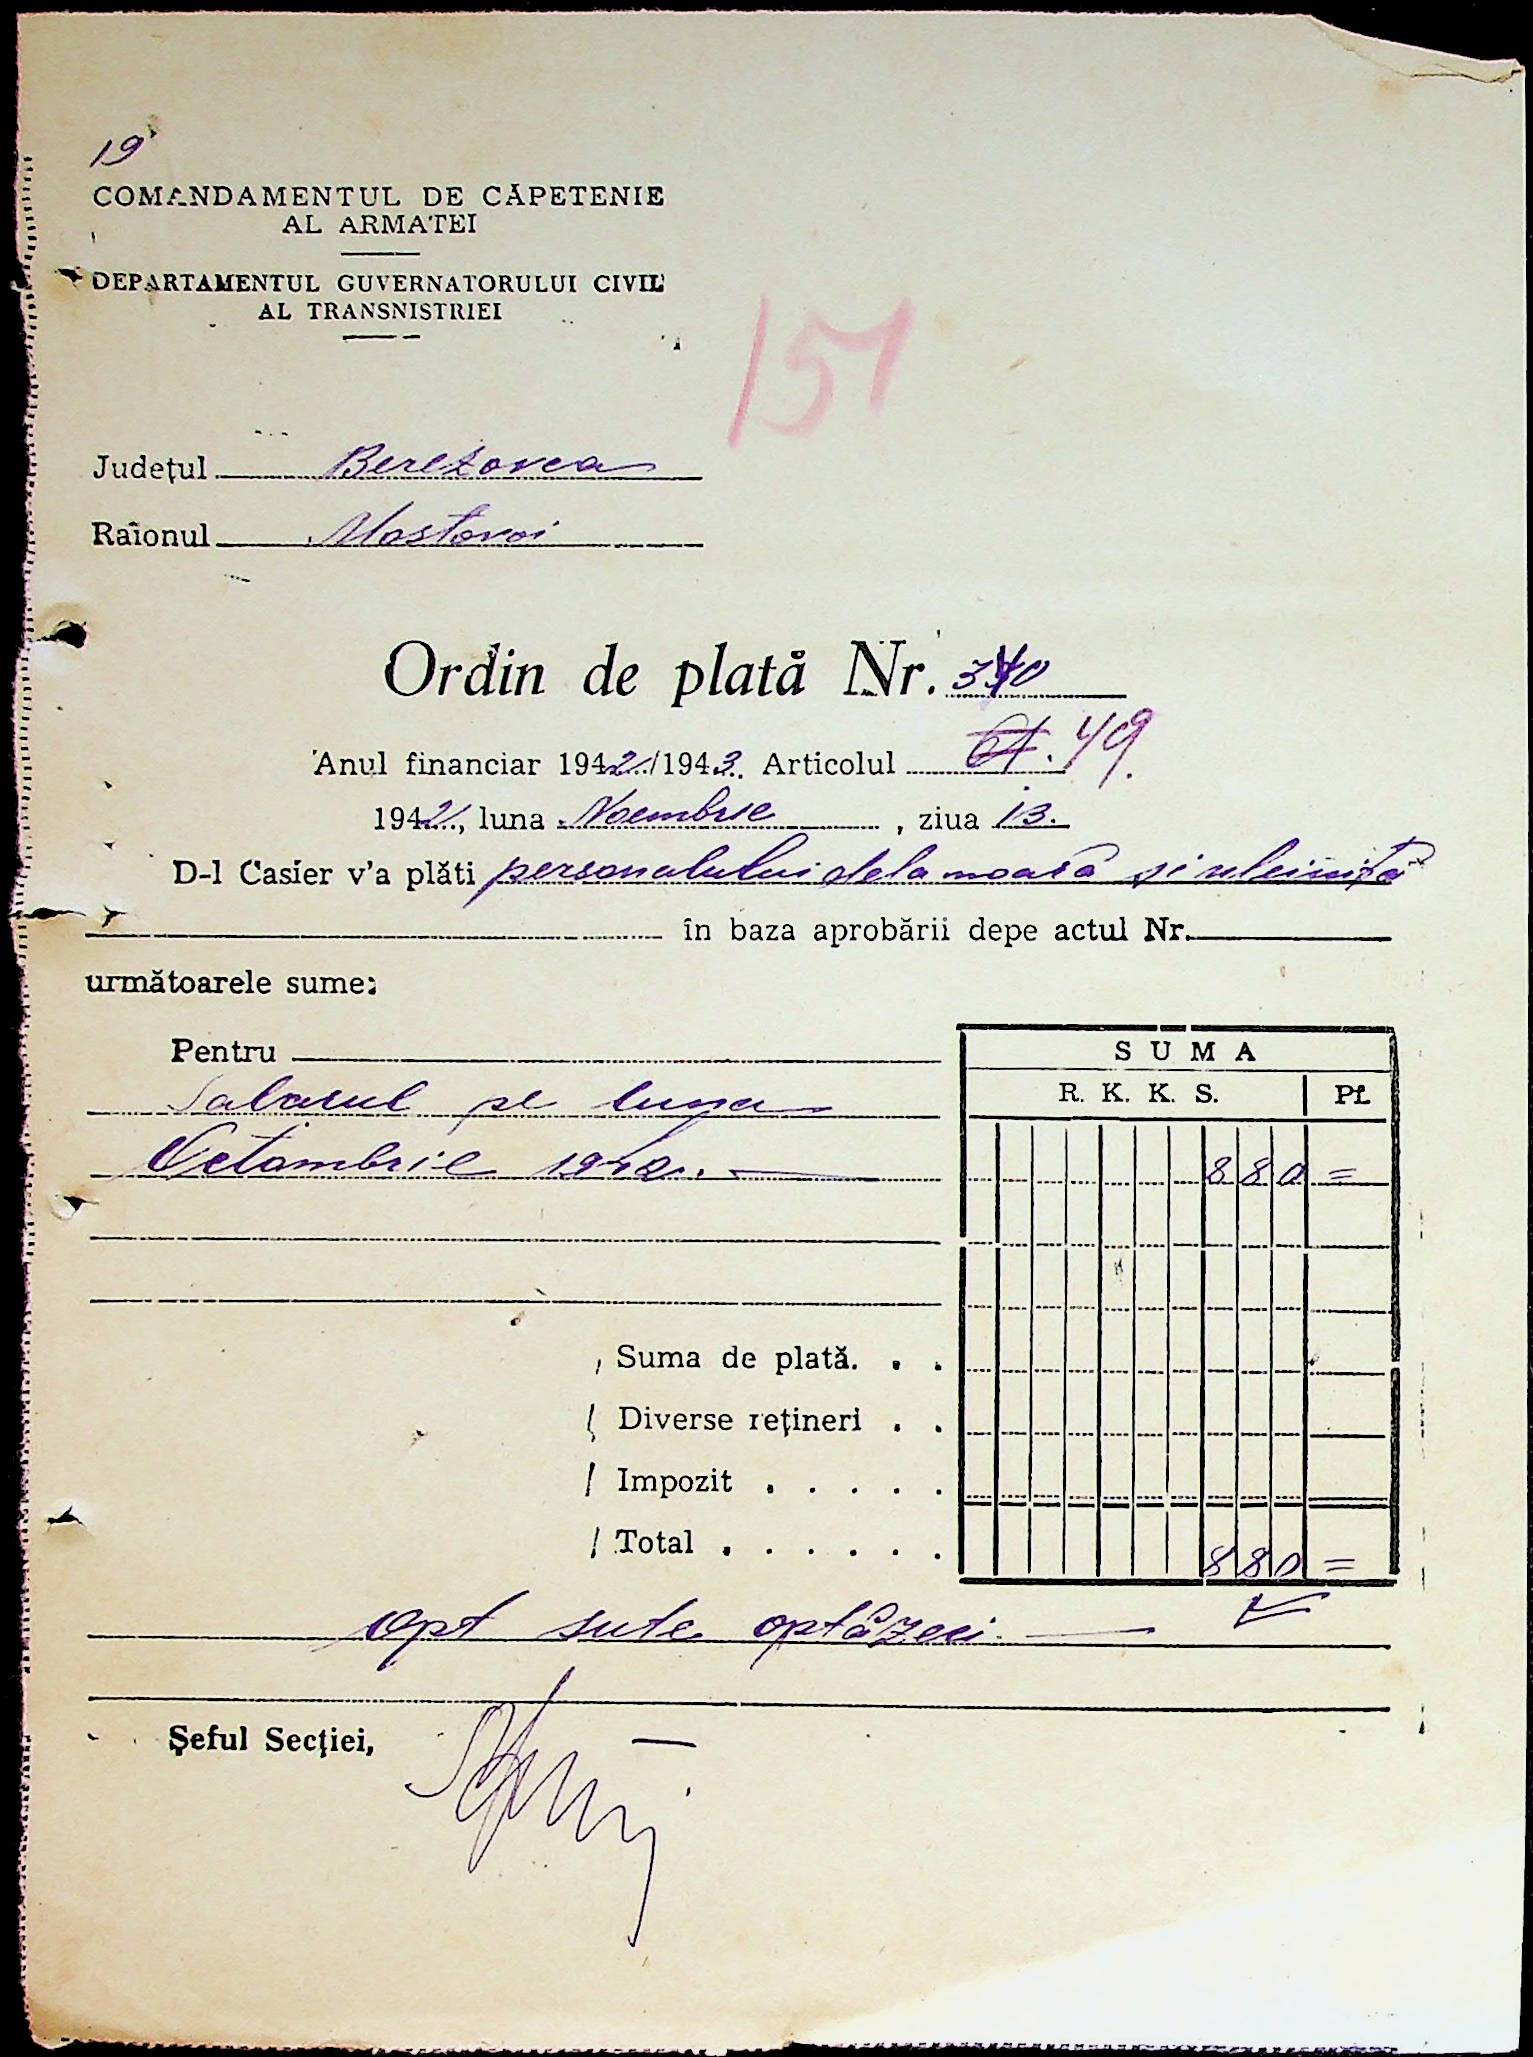 19
COMANDAMENTUL DE CĂPETENIE
AL ARMATEI
DEPARTAMENTUL GUVERNATORULUI CIVIL
AL TRANSNISTRIEI
151
Județul Berezovca
Raionul Mostovoi
Ordin de plată Nr. 370
Anul financiar 1942/1943. Articolul 61. 49.
1942, luna Noembrie, ziua 13.
D-l Casier v'a plăti personalului dela moară și uleiniță
în baza aprobării depe actul Nr.
următoarele sume:
Pentru
SUMA
R. K. K. S. Pf.
Salariul pe luna
Octombrie 1942. 880 =
Suma de plată. . .
Diverse rețineri . .
Impozit . . . . .
Total . . . . . . 880 =
Opt sute optăzeci.
Șeful Secției,